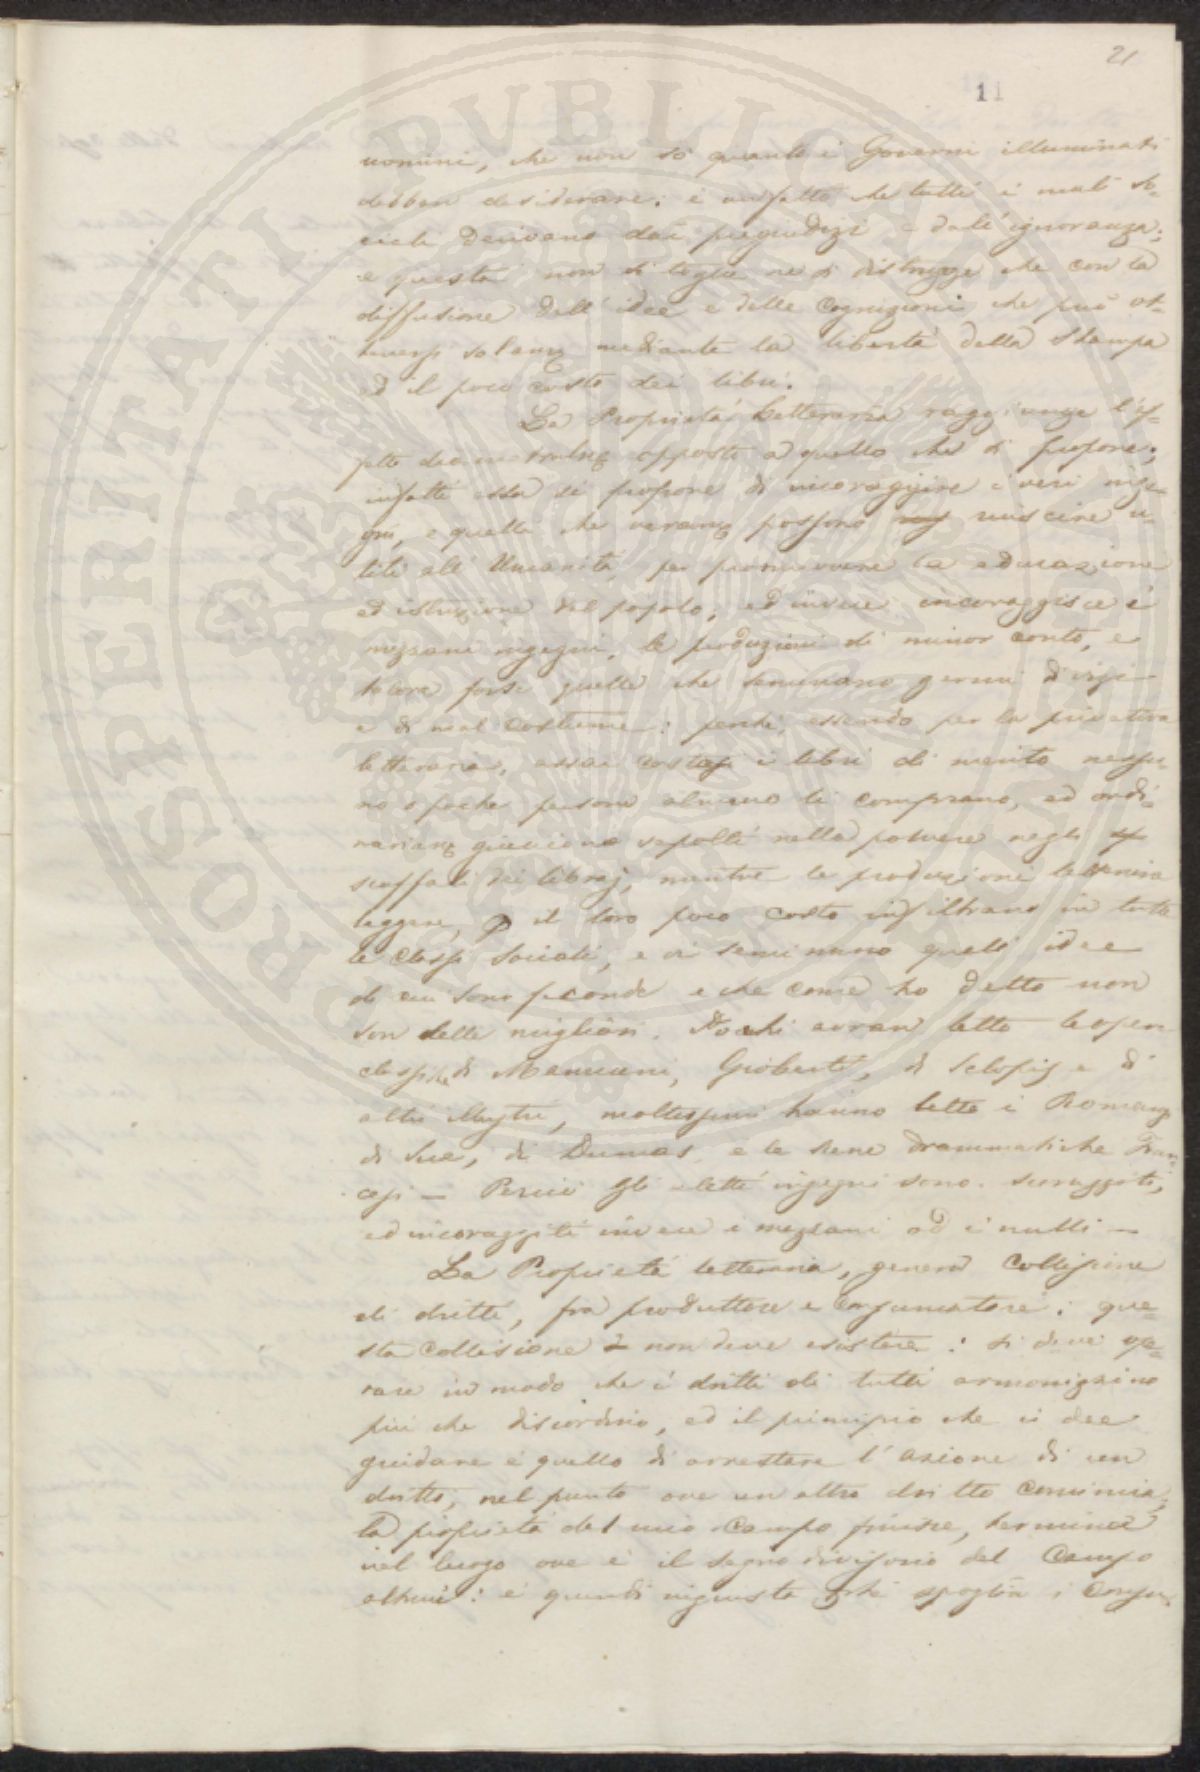 21
11
uomini, che non so quanto i Governi illuminati
debban desiderare: è un fatto che tutti i mali so-
ciali derivano dai pregiudizi e dall'ignoranza;
e questa non si toglie ne si distrugge che con la
diffusione dell'idee e delle cognizioni che può ot-
tenersi solam mediante la libertà della Stampa
ed il poco costo dei libri.
La Proprietà Letteraria raggiunge l'ef-
fetto opposto a quello che si propone;
infatti essa si propone di incoraggire i veri inge-
gni, e quelli che veram possono riuscire u-
tili all'Umanità, per promuovere la educazione
ed istruzione del popolo, ed invece incoraggisce i
mezzani ingegni, le produzioni di minor conto, e
talora forse quelle che seminano germi di vizi
e di mal costume: perchè, essendo per la privativa
letteraria, assai costosi i libri di merito nessu-
no o poche persone almeno li comprano, ed ordi-
nariam giacciono sepolti nella polvere negli
scaffali dei libraj, mentre le produzioni
leggere, p il loro poco costo infiltrano in tutte
le classi sociali, e vi seminano quelle idee
di cui sono feconde e che come ho detto non
son delle migliori. Pochi avran letto le opere
classiche di Mamiani, Gioberti, di Sclopis e di
altri Illustri, moltissimi hanno letto i Romanzi
di Sue, di Dumas, e le scene drammatiche Fran-
cesi — Perciò gli eletti ingegni sono scoraggiti,
ed incoraggiti invece i mezzani ed i nulli —
La Proprietà letteraria, genera Collisione
di dritti, fra produttore e consumatore: que-
sta collisione non deve esistere: si deve ope-
rare in modo che i dritti di tutti armonizzino
più che discordino, ed il principio che ci dee
guidare è quello di arrestare l'azione di un
dritto, nel punto ove un altro dritto comincia;
la proprietà del mio campo finisce, termina
nel luogo ove è il segno divisorio del Campo
altrui: è quindi ingiusto che spoglia i Consu